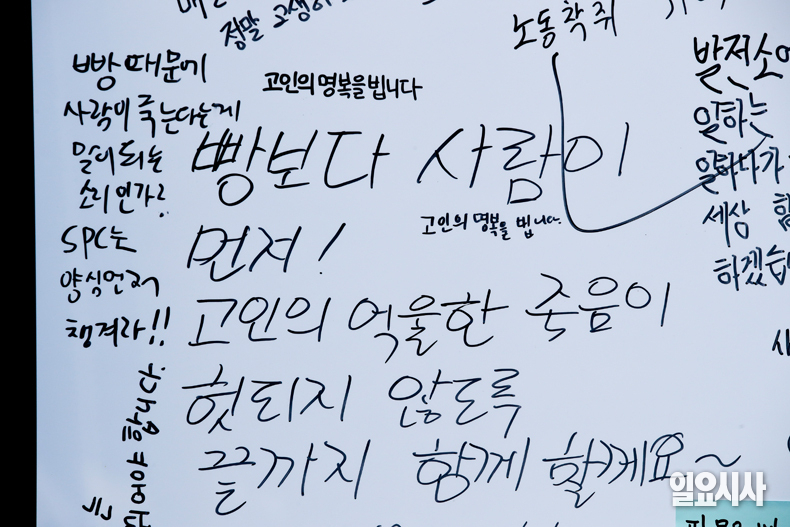 정말
노동착취
빵때문에
사람이 죽는다는게
말이되는
소리인가?
SPC는
양심먼저
챙겨라!!
고인의명복을빕니다
빵보다 사람이
먼저!
고인의 명복을 빕니다.
고인의 억울한 죽음이
헛되지 않도록
끝까지 함께 할게요~
발전소에
일하는
일하다가
세상
하겠습
일요시사